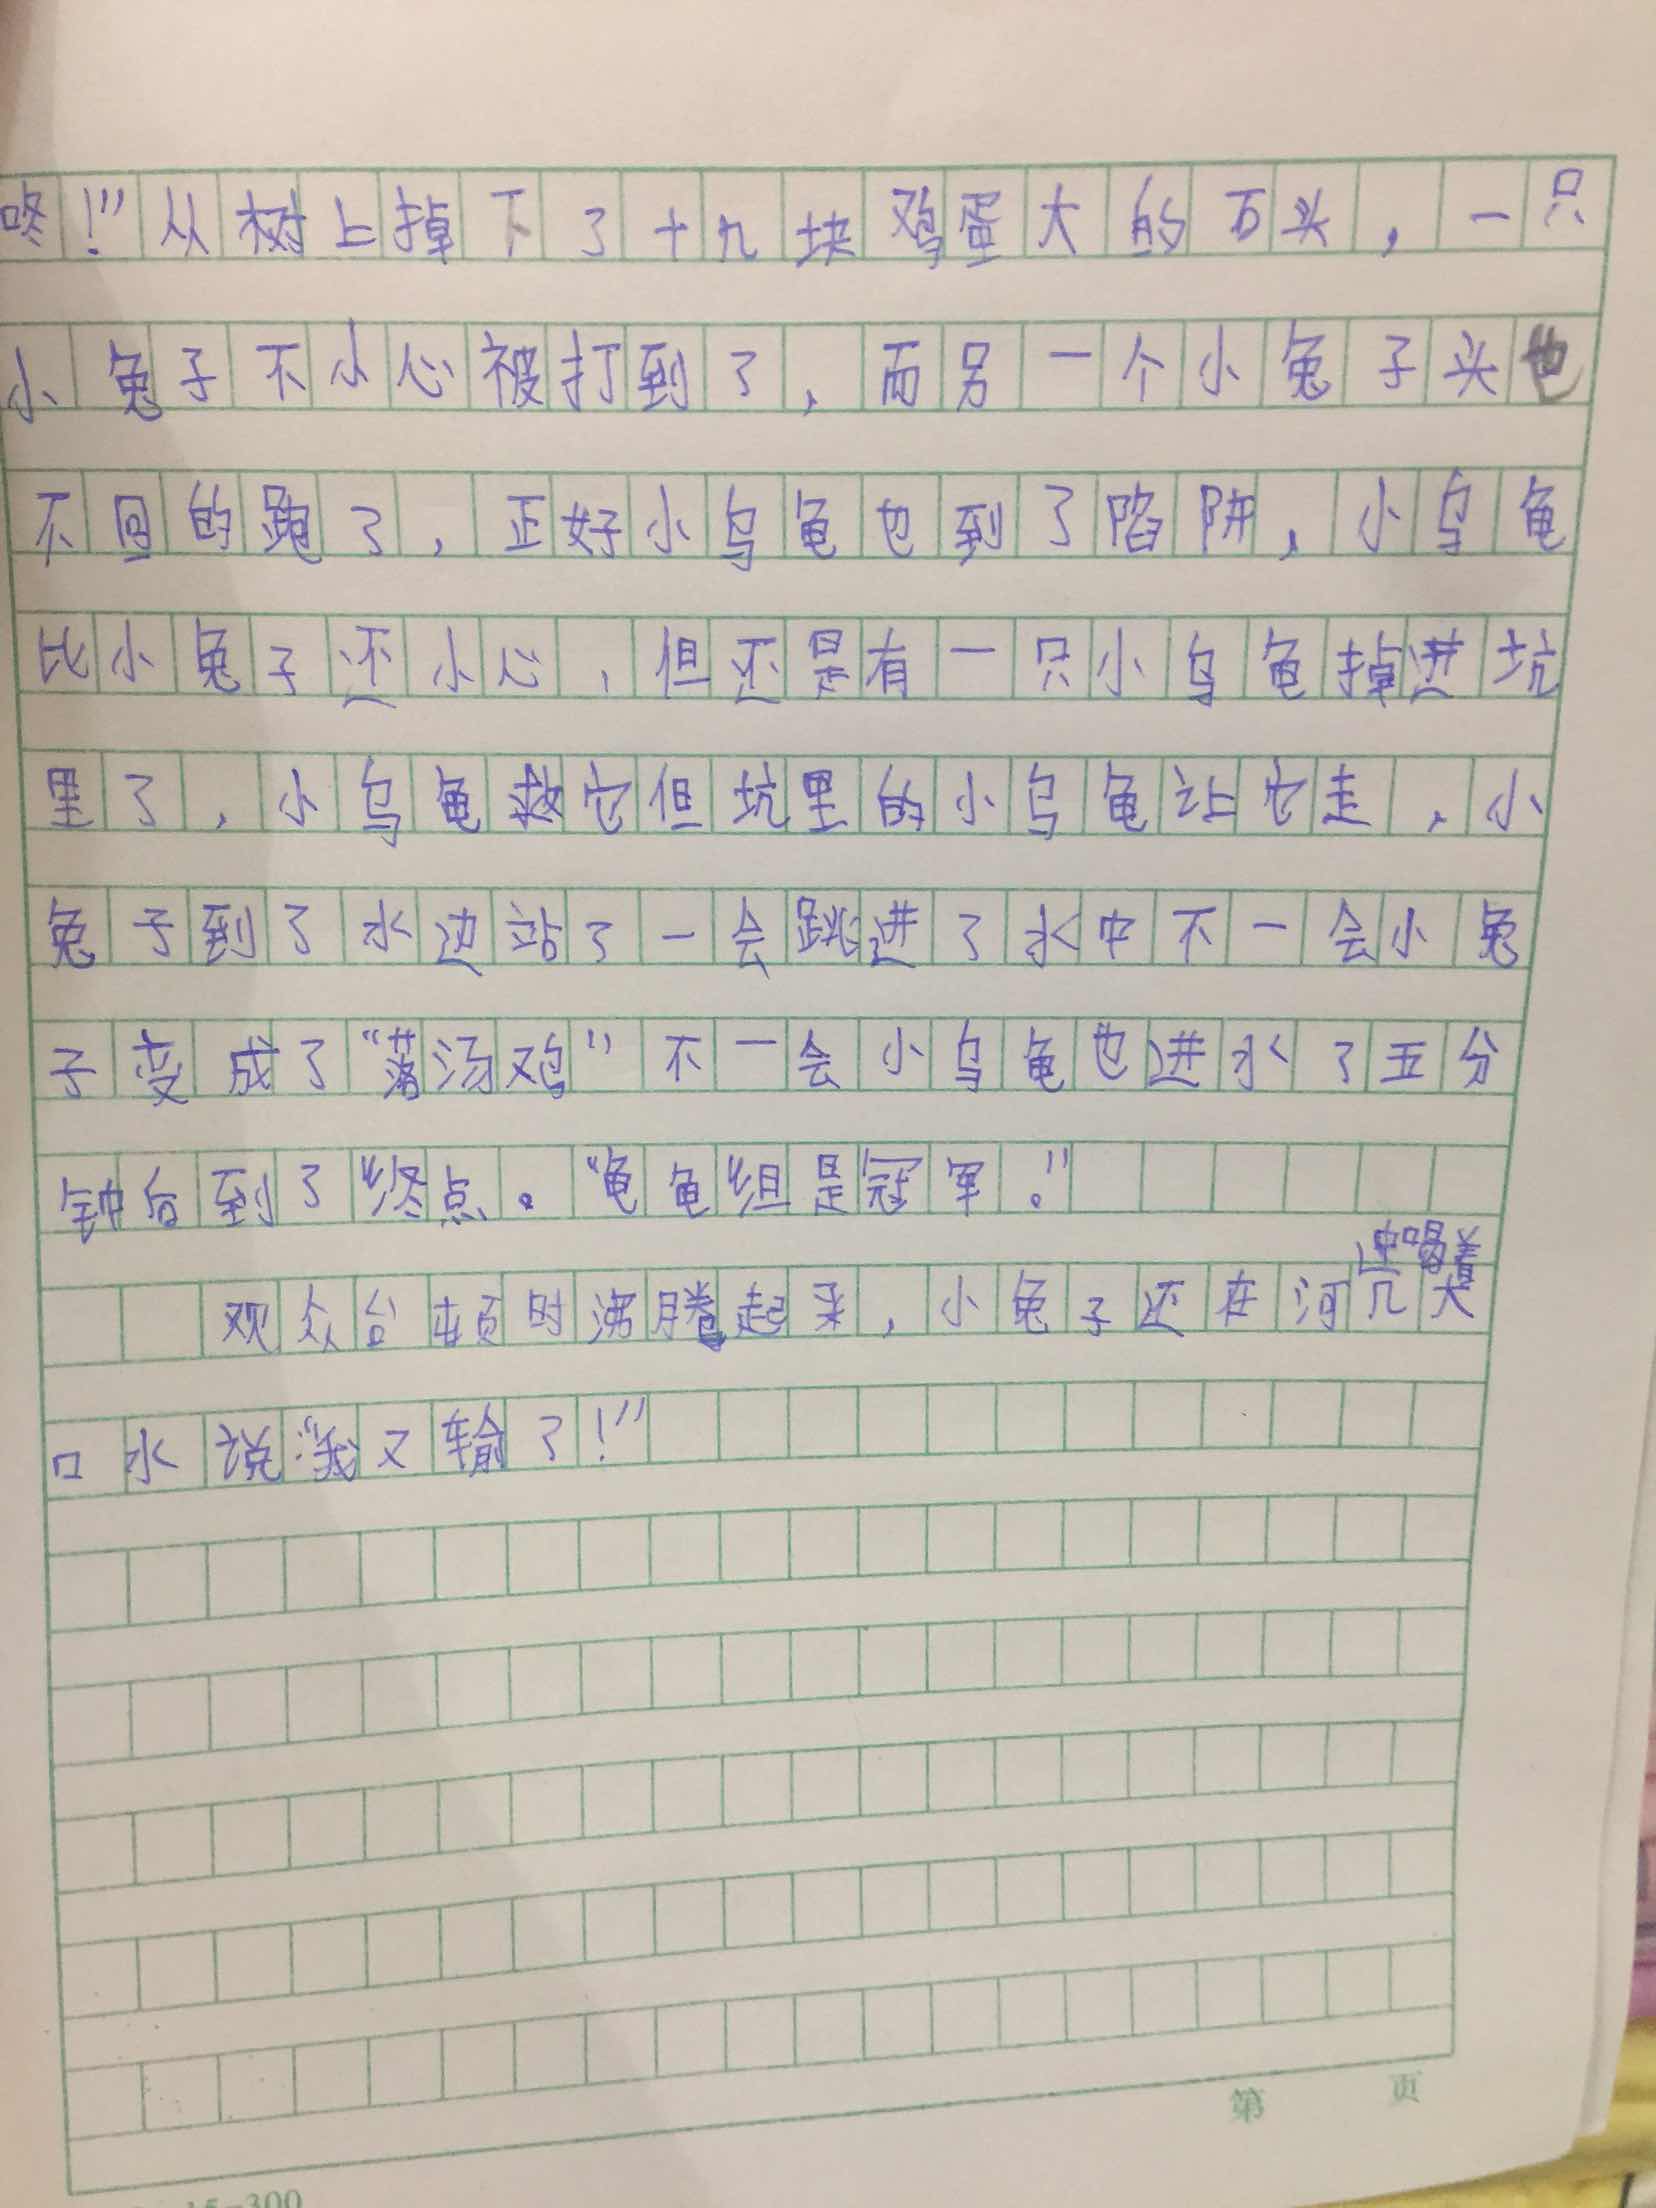 咚！”从树上掉下了十九块鸡蛋大的石头，一只
小兔子不小心被打到了，而另一个小兔子头也
不回的跑了，正好小乌龟也到了陷阱，小乌龟
比小兔子还小心，但还是有一只小乌龟掉进坑
里了，小乌龟救它但坑里的小乌龟让它走，小
兔子到了水边站了一会跳进了水中不一会小兔
子变成了“落汤鸡”不一会小乌龟也进水了五分
钟后到了终点。“龟龟组是冠军！”
中喝着
观众台顿时沸腾起来，小兔子还在河几大
口水说：“我又输了！”
第 页
15-300